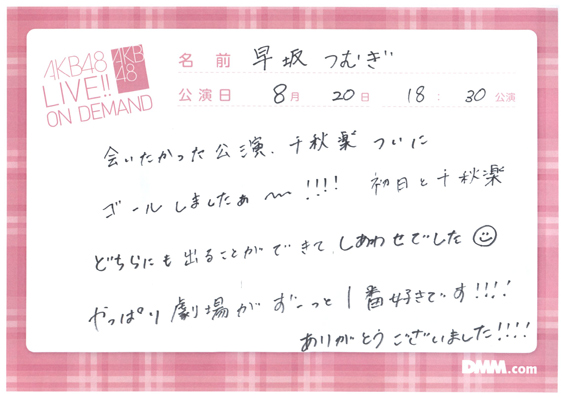 AKB48
LIVE!!
ON DEMAND
AKB
48
名前 早坂 つむぎ
公演日 8月 20日 18:30公演
会いたかった公演、千秋楽 ついに
ゴールしましたぁ〜!!!! 初日と千秋楽
どちらにも出ることができて、しあわせでした☺
やっぱり劇場がずーっと1番好きです!!!!
ありがとうございました!!!!
DMM.com